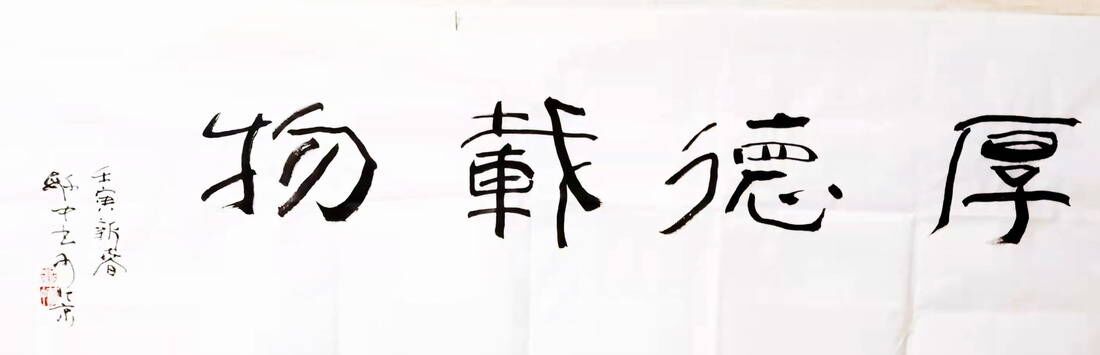 厚德載物
壬寅新春
中书于北京